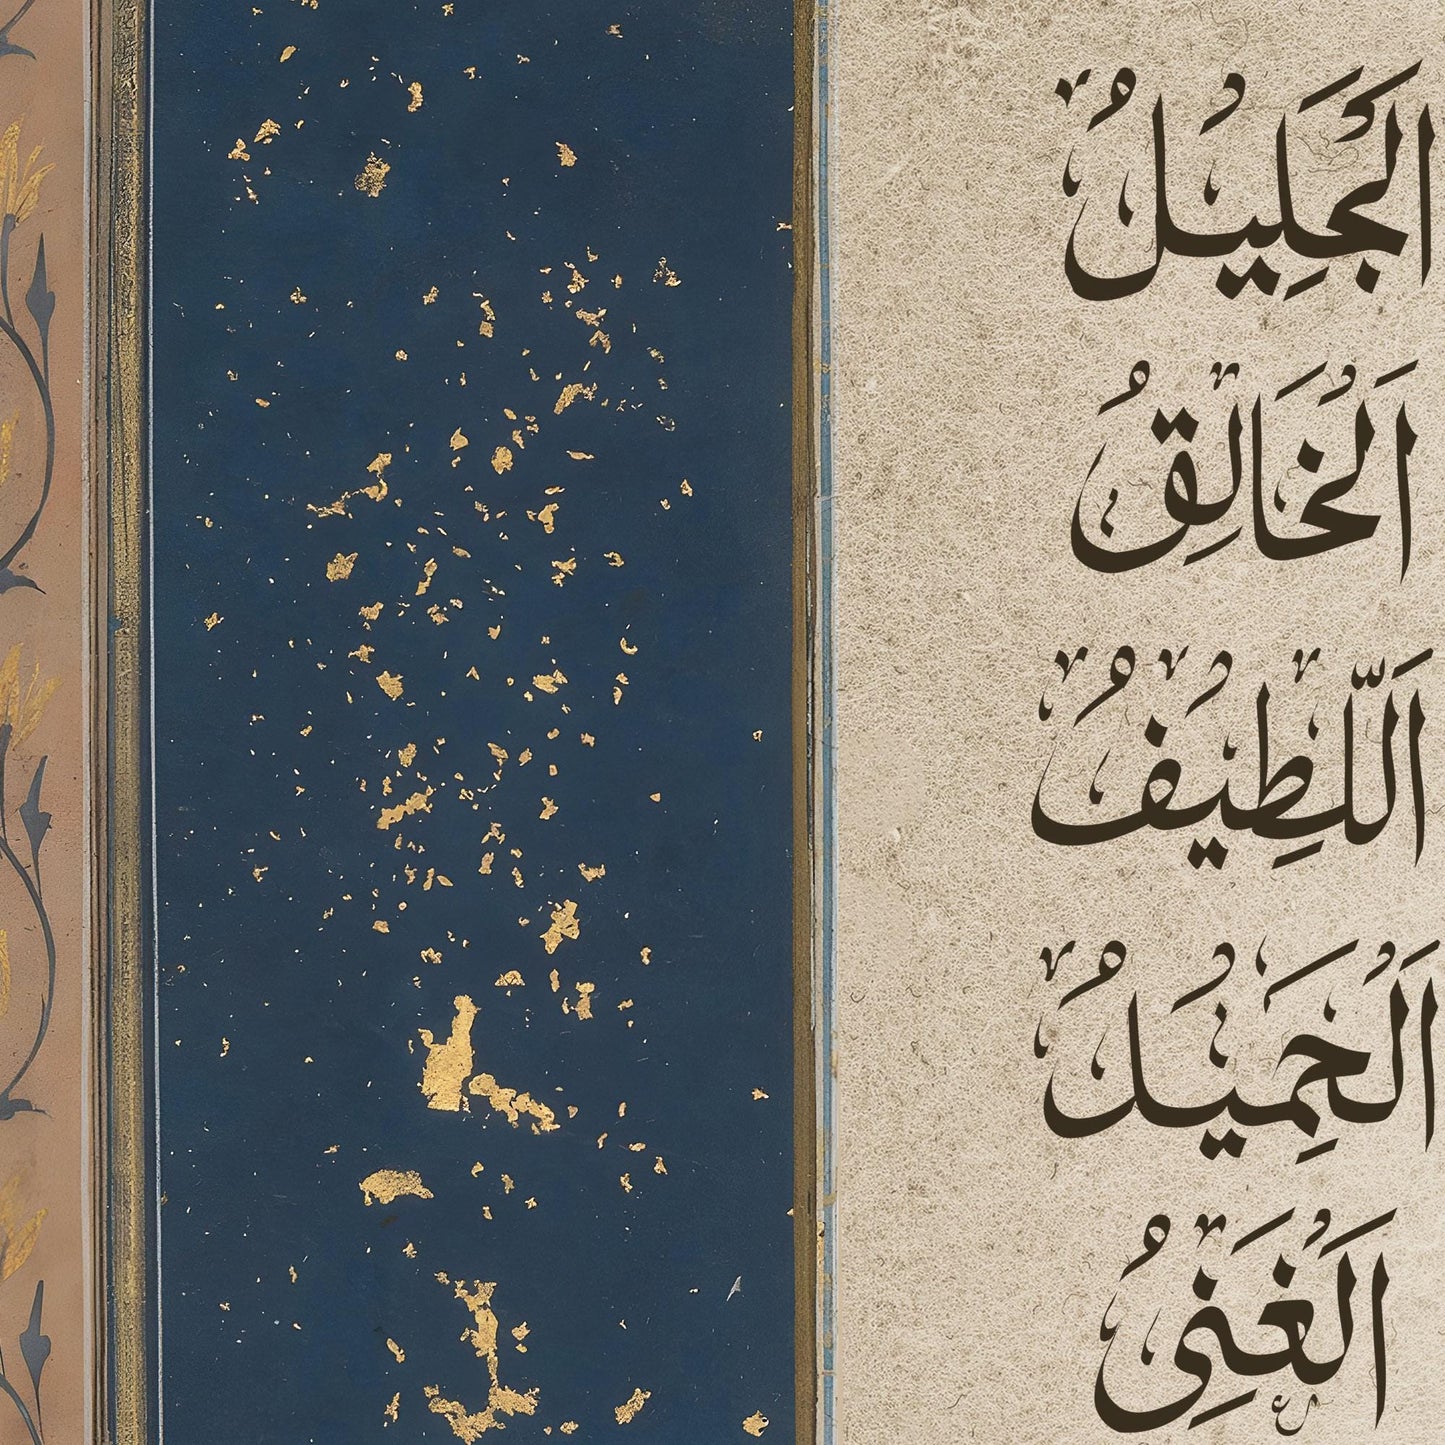 اَلْجَلِيلُ
اَلْخَالِقُ
اَللَّطِيفُ
اَلْخَمِيدُ
اَلْغَنِىُ